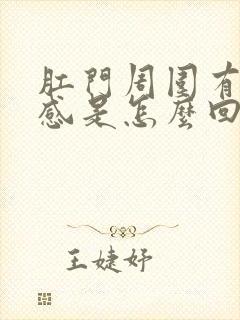 肛門周圍有
感是怎麼回
王婕妤